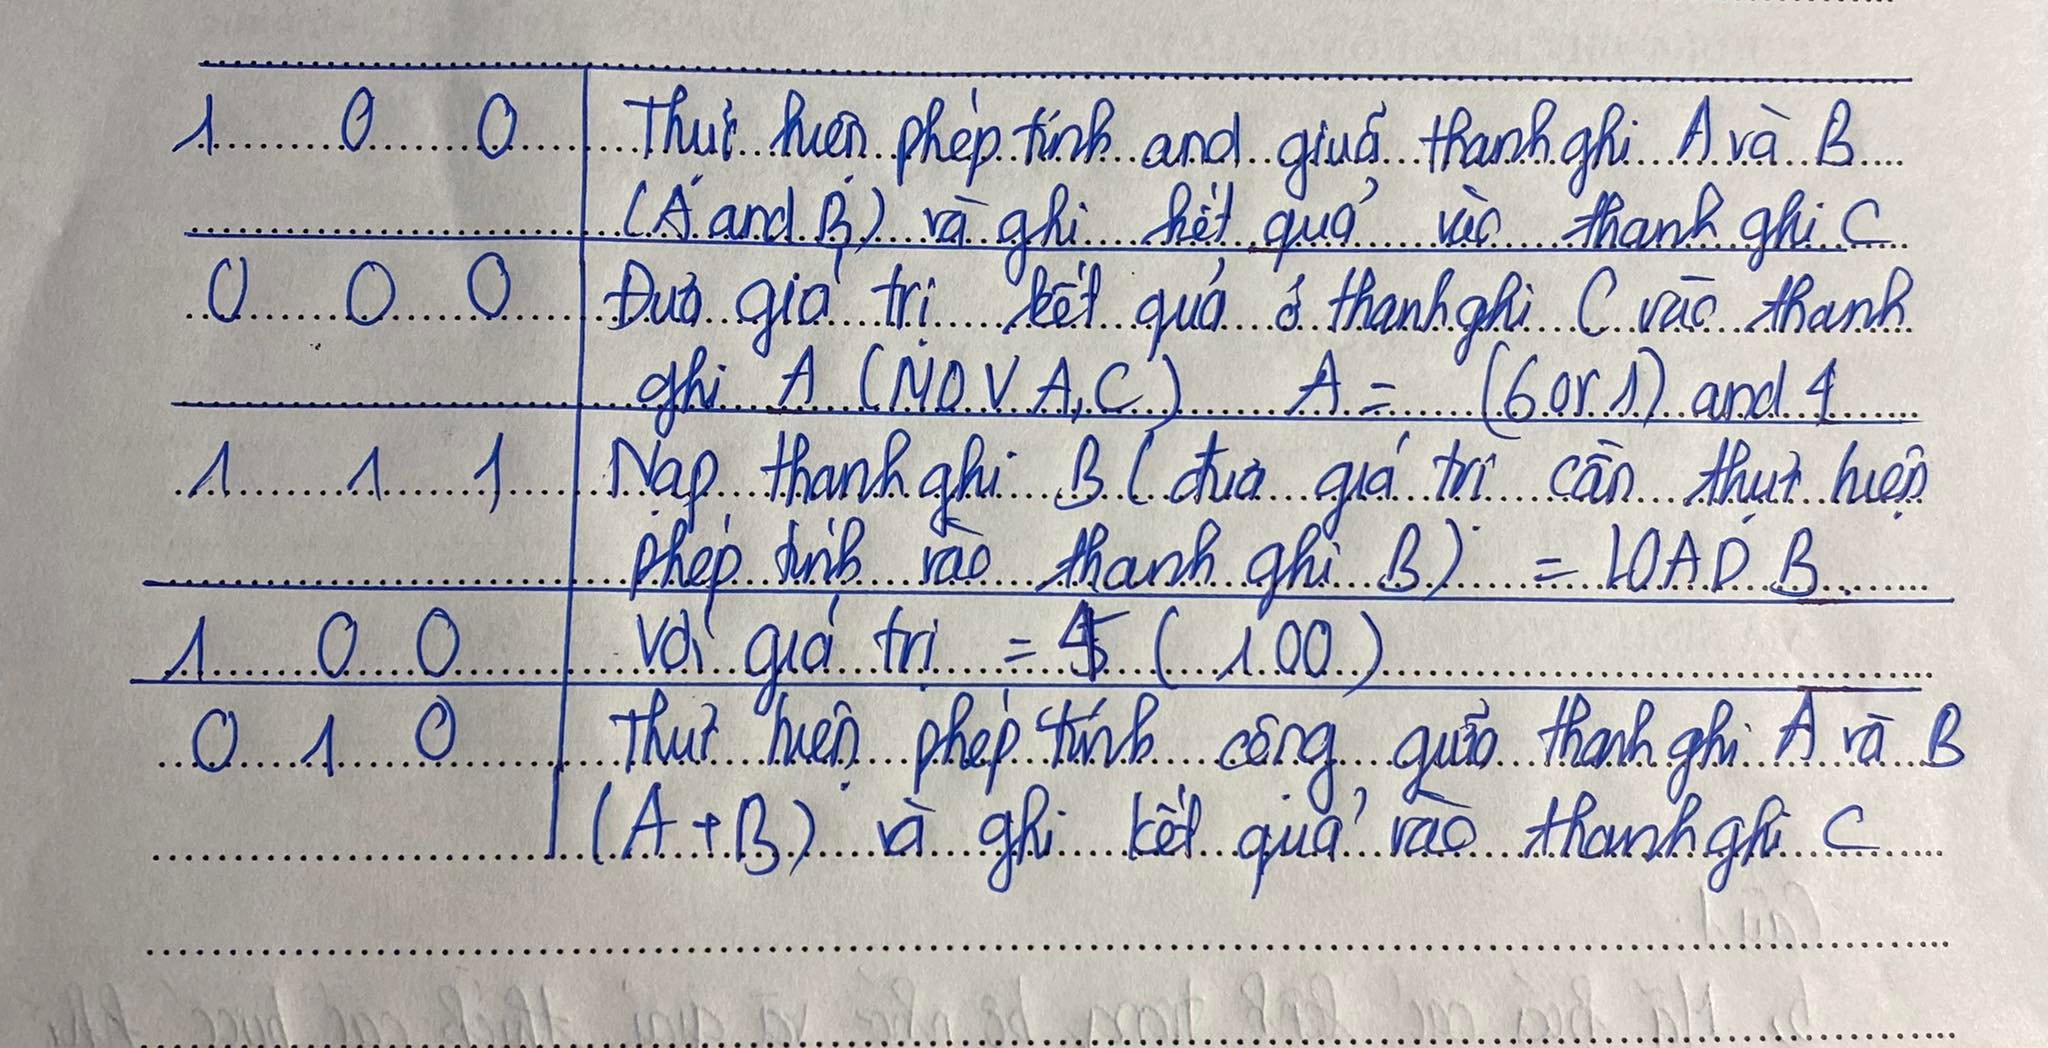 1 0 0 Thực hiện phép tính and giữa thanh ghi A và B
(A and B) và ghi kết quả vào thanh ghi C
0 0 0 Đưa giá trị kết quả ở thanh ghi C vào thanh
ghi A (MOV A, C) A = (6 or 1) and 4
1 1 1 Nạp thanh ghi B (đưa giá trị cần thực hiện
phép tính vào thanh ghi B) = LOAD B
1 0 0 Với giá trị = 4 (100)
0 1 0 Thực hiện phép tính cộng giữa thanh ghi A và B
(A + B) và ghi kết quả vào thanh ghi C